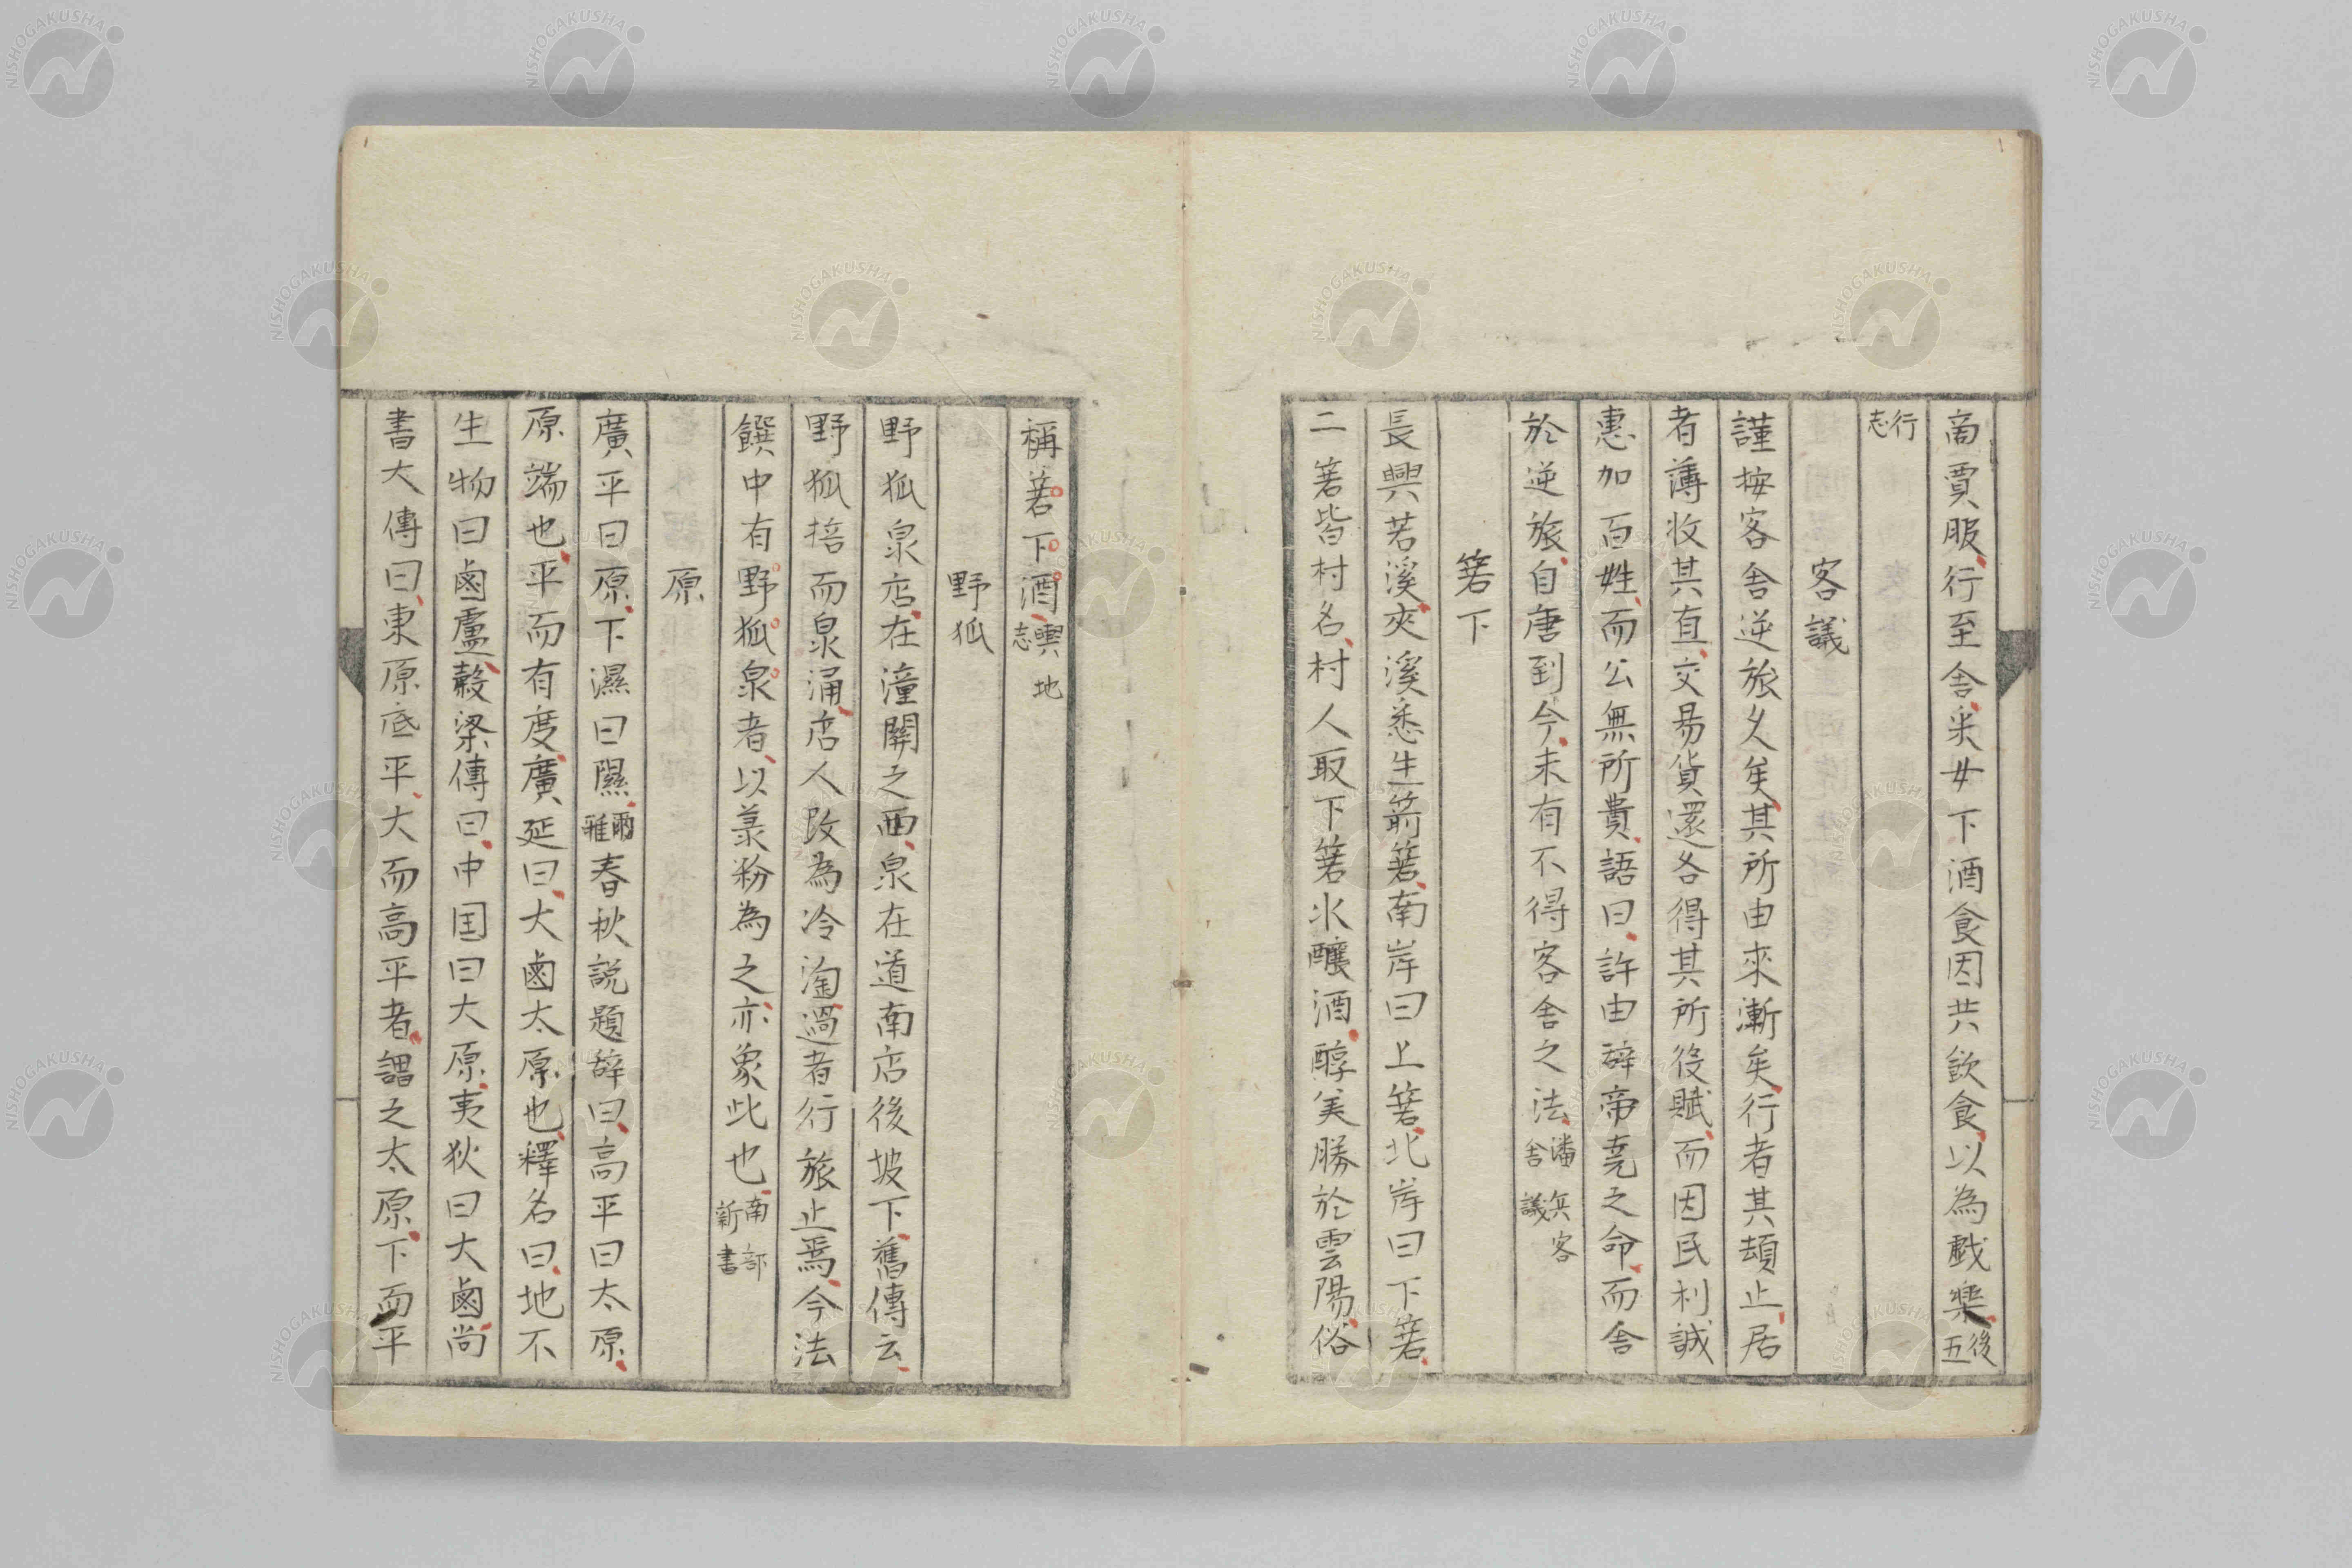 商賈服行至舎采女下酒食因共飲食以為戯樂後五
行志
客議
謹按客舎逆旅久矣其所由來漸矣行者其頓止居
者薄收其直交易貨還各得其所役賦而因民利誠
惠加百姓而公無所費語曰許由辞帝堯之命而舎
於逆旅自唐到今未有不得客舎之法潘兵客舎議
箬下
長興若溪夾溪悉生箭箬南岸曰上箬北岸曰下箬
二箬皆村名村人取下箬水釀酒醇美勝於雲陽俗
稱箬下酒輿地志
野狐
野狐泉店在潼關之西泉在道南店後坡下舊傳云
野狐掊而泉涌店人改為冷淘過者行旅止焉今法
饌中有野狐泉者以菉粉為之亦象此也南部新書
原
廣平曰原下濕曰隰爾雅春秋説題辞曰高平曰太原
原端也平而有度廣延曰大鹵太原也釋名曰地不
生物曰鹵盧穀梁傳曰中国曰大原夷狄曰大鹵尚
書大傳曰東原底平大而高平者謂之太原下而平